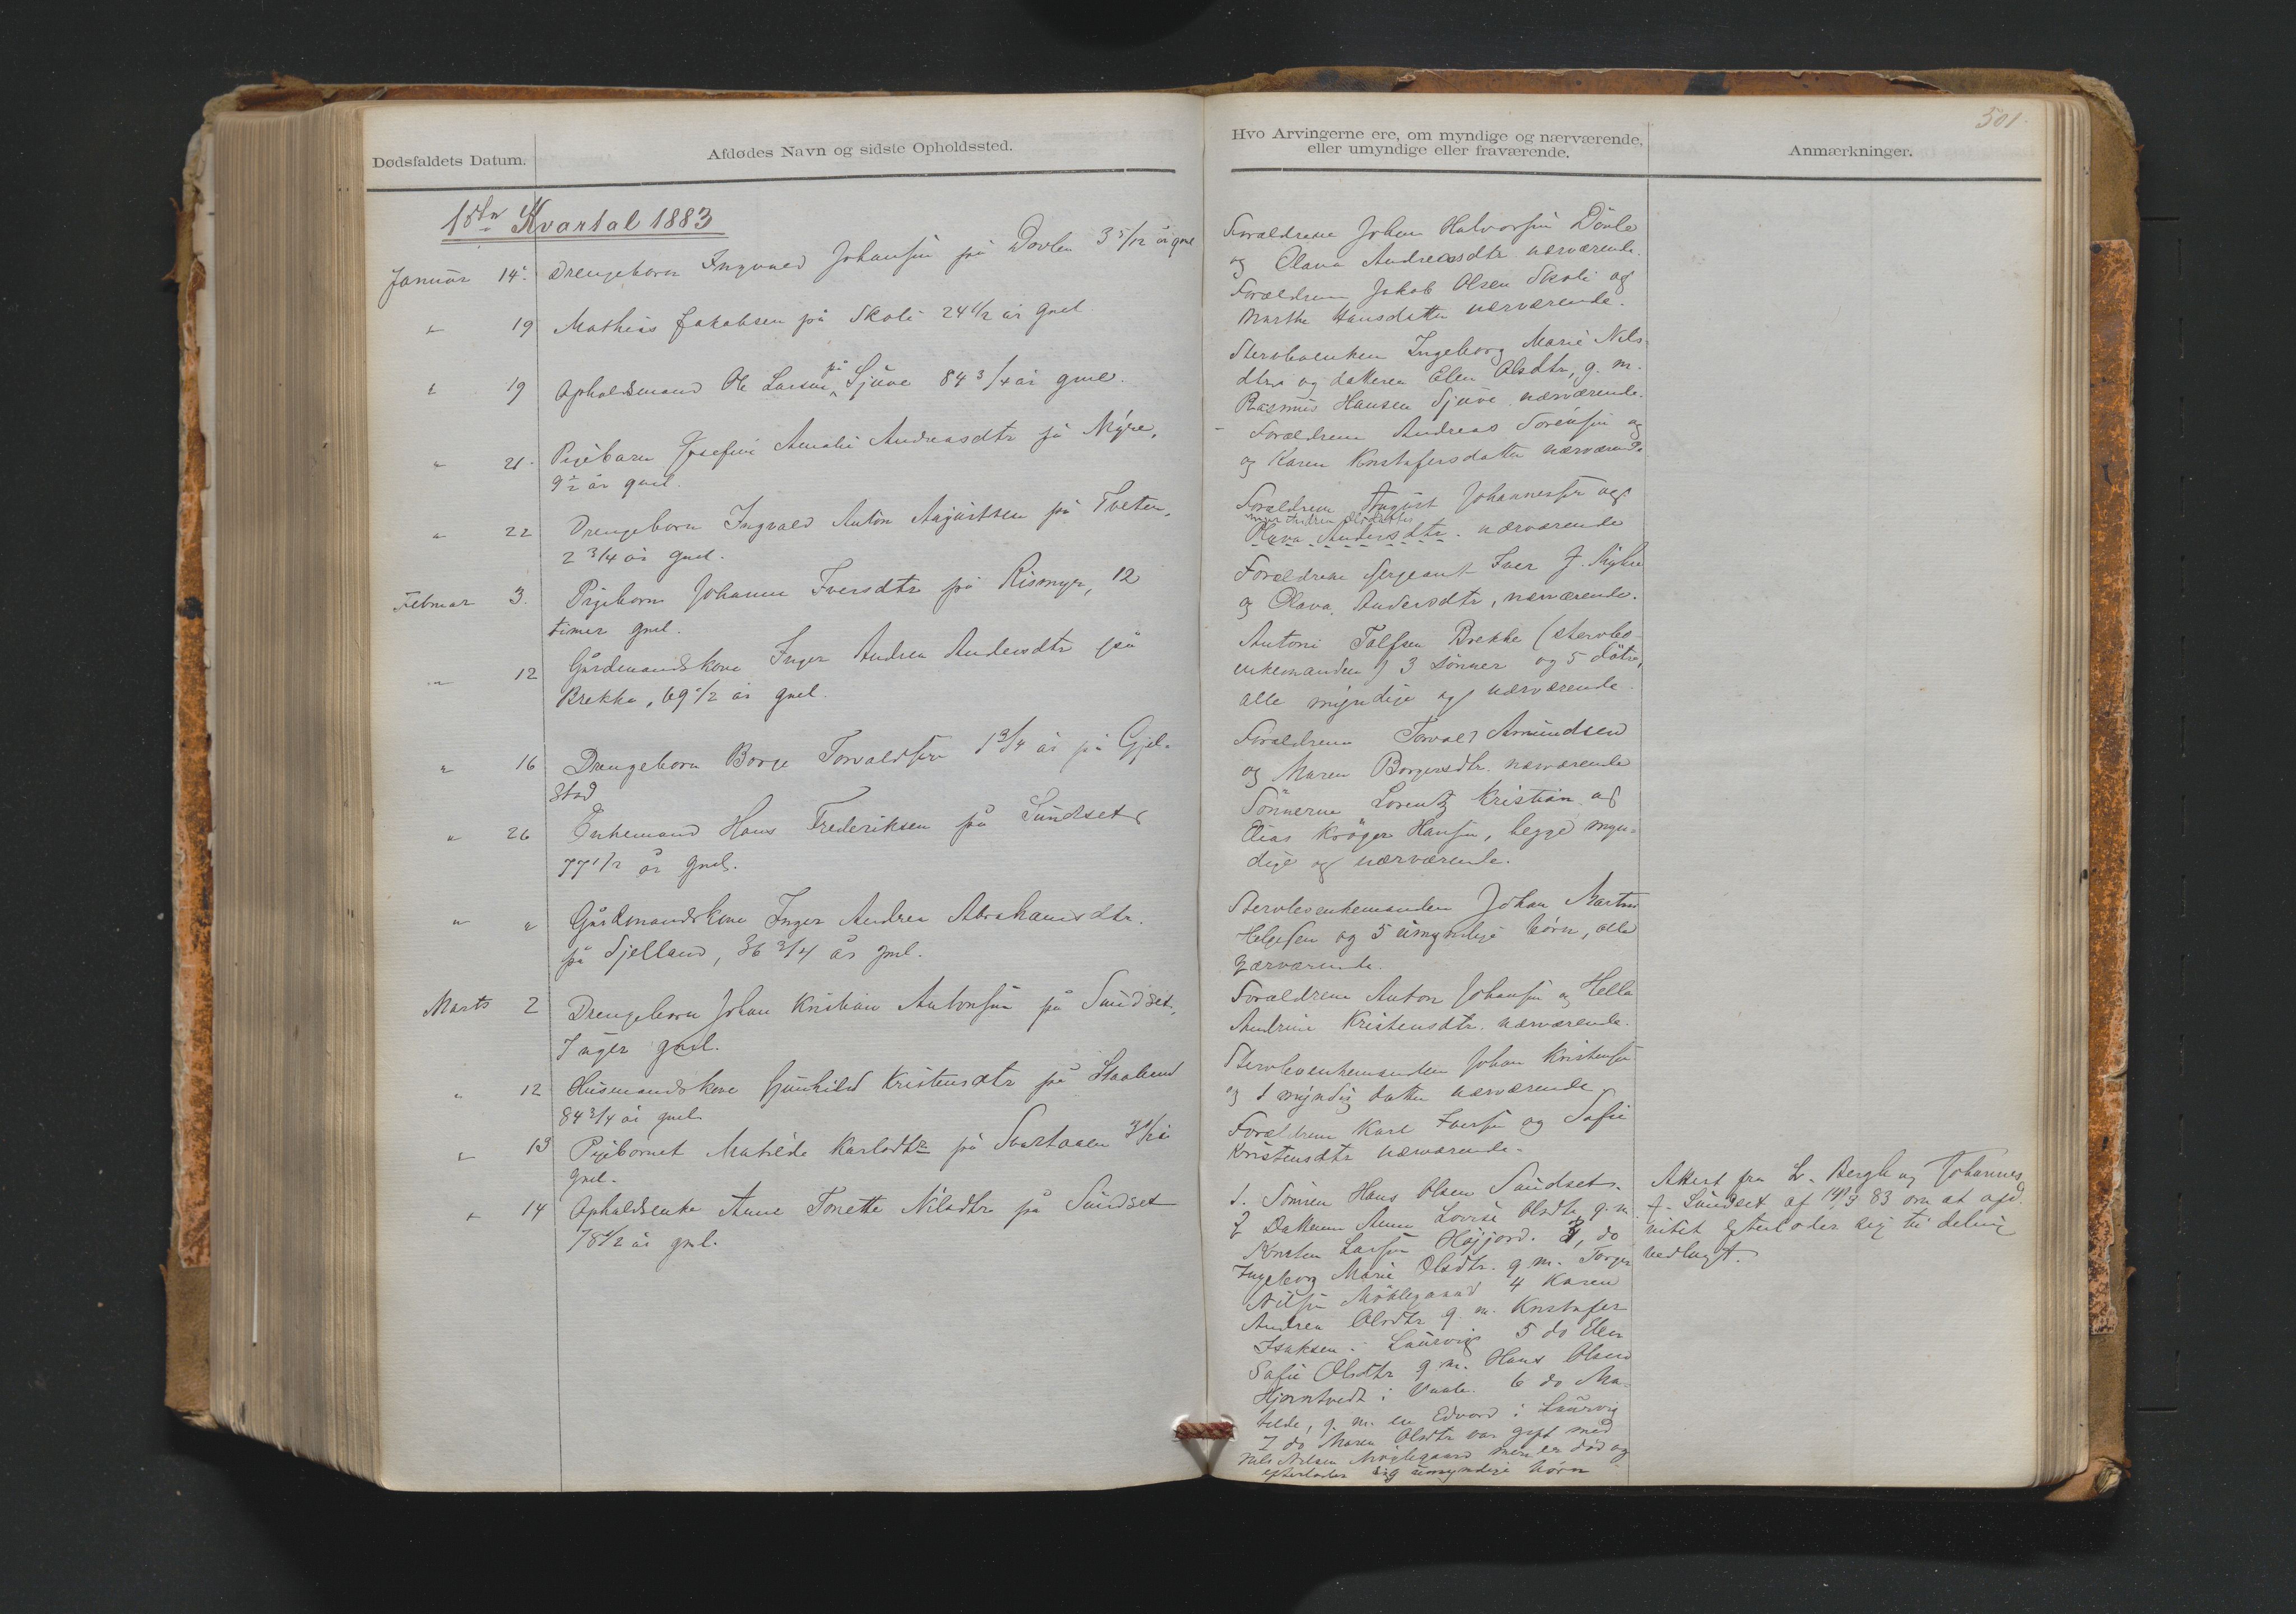 Dødsfaldets Datum.
Afdødes Navn og sidste Opholdssted.
1ste Kvartal 1883
Januar 14. Drengebarn Ingvald Johansen på Dovlen 3 5/12 år gml
" 19 Mathias Jakobsen på Skoli 24 1/2 år gml.
" 19 Opholdsmand Ole Larsen på Sjuve 84 3/4 år gml.
" 21. Pigebarn Josefine Amalie Andreasdtr på Mýre,
9 1/2 år gml.
" 22 Drengebarn Ingvald Anton Augustsen på Tveten,
2 3/4 år gml.
Februar 3. Pigebarn Johanne Iversdtr på Rismyr, 12
timer gml.
" 12 Gårdmandskone Inger Andrea Andersdtr på
Brekke, 69 1/2 år gml.
" 16 Drengebarn Borge Torvaldsen 1 3/4 år på Gjel-
stad
" 26 Enkemand Hans Frederiksen på Sundset
77 1/2 år gml.
" " Gårdmandskone Inger Andrea Abrahamsdtr.
på Sjelland, 36 3/4 år gml.
Marts 2 Drengebarn Johan Kristian Antonsen på Sundset,
7 uger gml.
" 12 Husmandskone Gunhild Kristensdtr på Staaland
84 3/4 år gml
" 13 Pigebarnet Matilde Karlsdtr på Svartaaen
gml.
" 14 Opholdsenke Anne Tonette Nilsdtr på Sundset
78 1/2 år gml.
501.
Hvo Arvingerne ere, om myndige og nærværende,
eller umyndige eller fraværende.
Anmærkninger.
Forældrene Johan Halvorsen Dövle
og Olava Andreasdtr nærværende.
Forældrene Jakob Olsen Skoli og
Marthe Hansdatter nærværende.
Stervboenken Ingeborg Marie Nils-
dtr og datteren Elen Olsdtr, g. m.
Rasmus Hansen Sjuve nærværende.
- Forældrene Andreas Sörensen og
og Karen Kristofersdatter nærværende
Forældrene August Johannessen og
Olava Andersdtr. nærværende
Forældrene Sergeant Iver J. Myhre
og Olava Andersdtr, nærværende.
Antoni Tolfsen Brekke (stervbo-
enkemanden) 3 sönner og 5 dötre,
alle myndige og nærværende.
Forældrene Torvald Amundsen
og Maren Borgersdtr. nærværende
Sönnerne Lorentz Kristian og
Elias Kröger Hansen, begge myn-
dige og nærværende.
Stervboenkemanden Johan Martin
Helgesen og 5 umyndige börn, alle
nærværende.
Forældrene Anton Johansen og Hella
Andrine Kristensdtr. nærværende.
Stervboenkemanden Johan Kristensen
og 1 myndig datter nærværende
Forældrene Karl Iversen og Sofie
Kristensdtr nærværende.
1. Sönnen Hans Olsen Sundset.
2 Datteren Anne Lovise Olsdtr, g. m.
Kristen Larsen Högjord. 3, do
Ingeborg Marie Olsdtr. g. m. Torger
Nilsen Möklegaard 4 Karen
Andrea Olsdtr g. m. Kristofer
Isaksen i Laurvig 5 do Elen
Sofie Olsdtr g. m. Hans Olsen
Hjerntvedt i Vaale. 6 do Ma-
tilde, g. m. en Edvard i Laurvig
7 do Maren Olsdtr var gift med
Nils Nilsen Möglegaard men er död og
efterlader sig umyndige börn
Attest fra L. Bergh og Johannes
J. Sundset af 14/3 83 om at afd.
intet efterlader sig til deling
vedlagt.